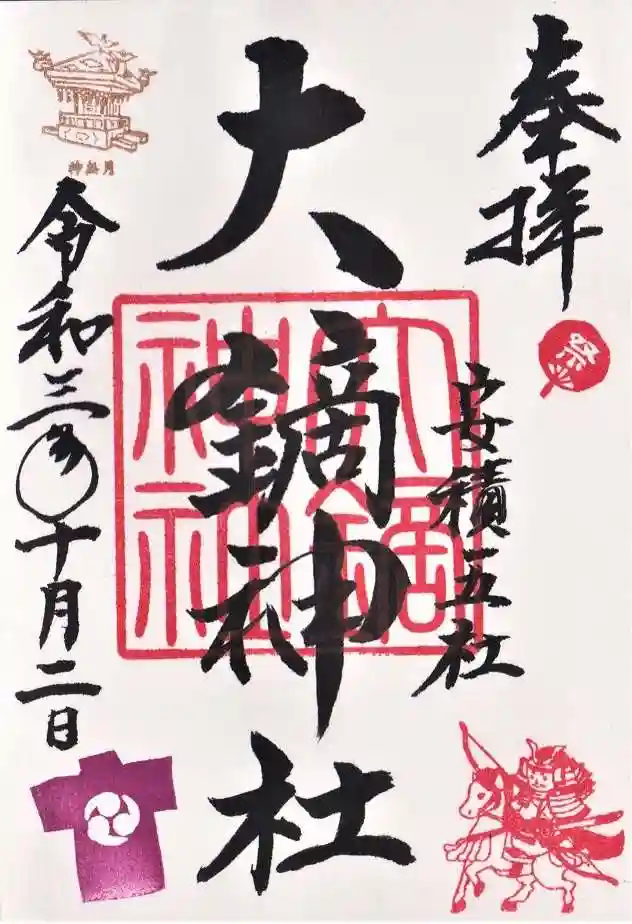 奉拝
祭
安積五社
大鏑神社
大鏑
神社
神無月
令和三年十月二日